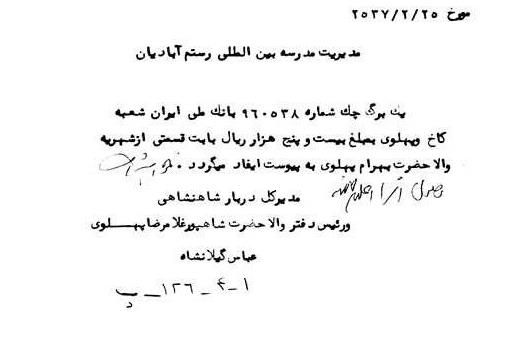 مورخ ۲۵۳۷/۲/۲۵
مدیریت مدرسه بین المللی رستم آبادیان
یک برگ چک شماره ۹۶۰۵۳۸ بانک ملی ایران شعبه
کاخ وپهلوی بمبلغ بیست و پنج هزار ریال بابت قسمتی ازشهریه
والا حضرت بهرام پهلوی به پیوست ایفاد میگردد . خواهشمند است
وصول آنرا اعلام فرمایند
مدیرکل دربار شاهنشاهی
ورئیس دفتر والا حضرت شاهپورغلامرضاپهلوی
عباس گیلانشاه
۱-۴-۱۲۶-پ